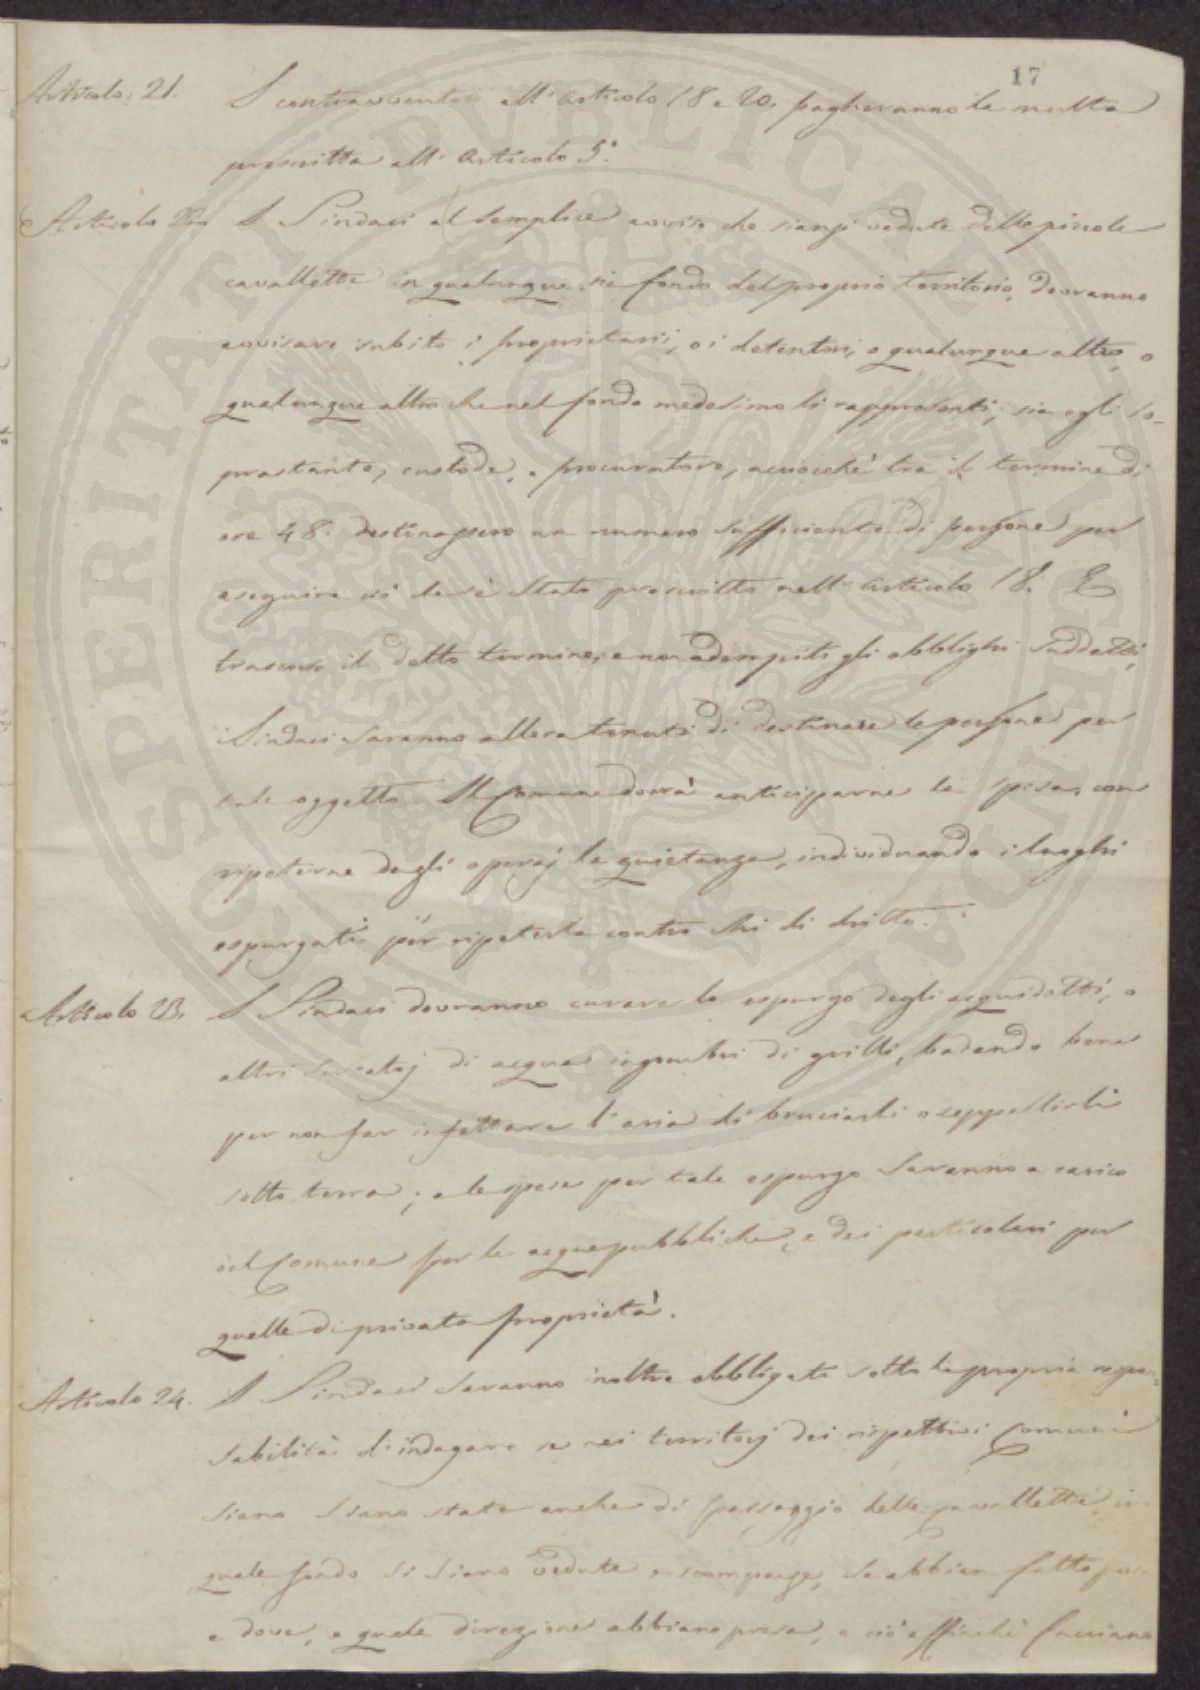 17
Articolo 21. I contravventori all'Articolo 18 e 20. pagheranno la multa
prescritta all'Articolo 5°.
Articolo 22. I Sindaci al semplice avviso che siansi vedute delle piccole
cavallette in qualunque sia fondo del proprio territorio, dovranno
avvisare subito i proprietarii, o i detentori, o qualunque altro, o
qualunque altro che nel fondo medesimo li rappresenti, sia egli so-
prastante, custode, o procuratore, acciocchè tra il termine di
ore 48. destinassero un numero sufficiente di persone per
eseguire ciò che è stato prescritto nell'Articolo 18. E
trascorso il detto termine, e non adempiti gli obblighi suddetti,
i Sindaci saranno allora tenuti di destinare le persone per
tale oggetto. Il Comune dovrà anticiparne la spesa, con
ripeterne dagli operaj la quietanza, individuando i luoghi
espurgati per ripeterla contro chi di dritto.
Articolo 23. I Sindaci dovranno curare lo espurgo degli acquidotti, o
altri serbatoj di acqua ingombri di grilli, badando bene
per non far infettare l'aria di bruciarli o seppellirli
sotto terra; e le spese per tale espurgo saranno a carico
del Comune per le acque pubbliche, e dei particolari per
quelle di privata proprietà.
Articolo 24. I Sindaci saranno inoltre obbligati sotto la propria respon-
sabilità di indagare se nei territorj dei rispettivi Comuni
siano siano state anche di passaggio delle cavallette, in
quale fondo si siano vedute o scomparse, se abbian fatto
e dove, e quale direzione abbiano presa, e ciò affinchè facciano